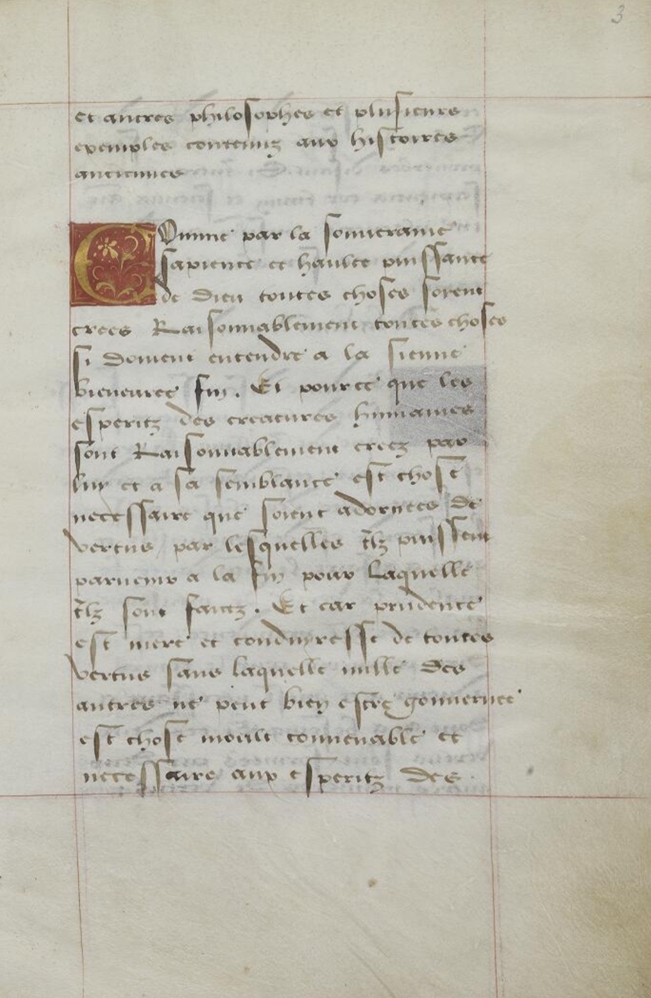 3
et autres philosophes et plusieurs
exemples contenuz aux histoires
anciennes
Comme par la souueraine
sapience et haulte puissance
de dieu toutes choses soient
crees Raisonnablement toutes choses
si doiuent entendre a la sienne
bieneuree fin. Et pource que les
esperitz des creatures humaines
sont Raisonnablement creez par
luy et a sa semblance est chose
necessaire que soient adornees de
vertus par lesquelles ilz puissent
paruenir a la fin pour Laquelle
ilz sont faictz. Et car prudence
est mere et conduyresse de toutes
vertus sans laquelle nulle des
autres ne peut bien estre gouuernee
est chose moult conuenable et
necessaire aux esperitz des